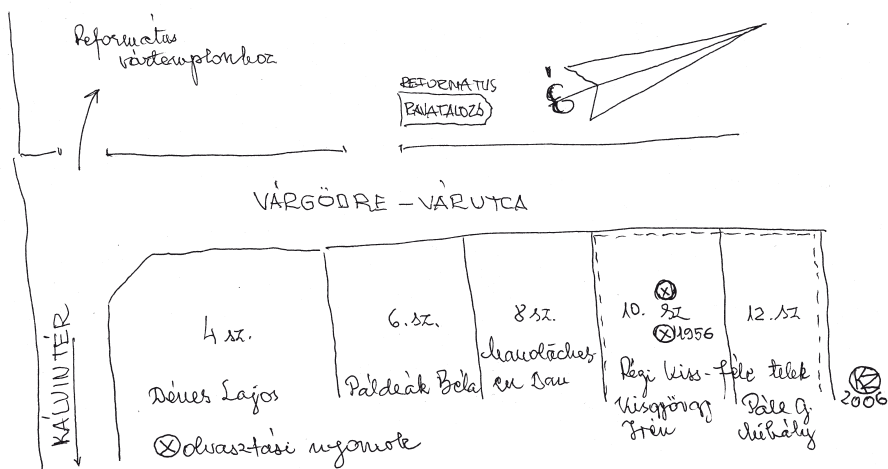 Református
vártemplomhoz
REFORMÁTUS
PAVATALOZÓ
É
VÁRGÖDRE – VÁRUTCA
KÁLVIN TÉR
4 sz.
Dénes Lajos
6. sz.
Páldeák Béla
8 sz.
Dan
10. sz
1956
12. sz
Régi Kiss-féle telek
Kisgyörgy
Irén
Pále G.
Mihály
KZ
2006
olvasztási nyomok